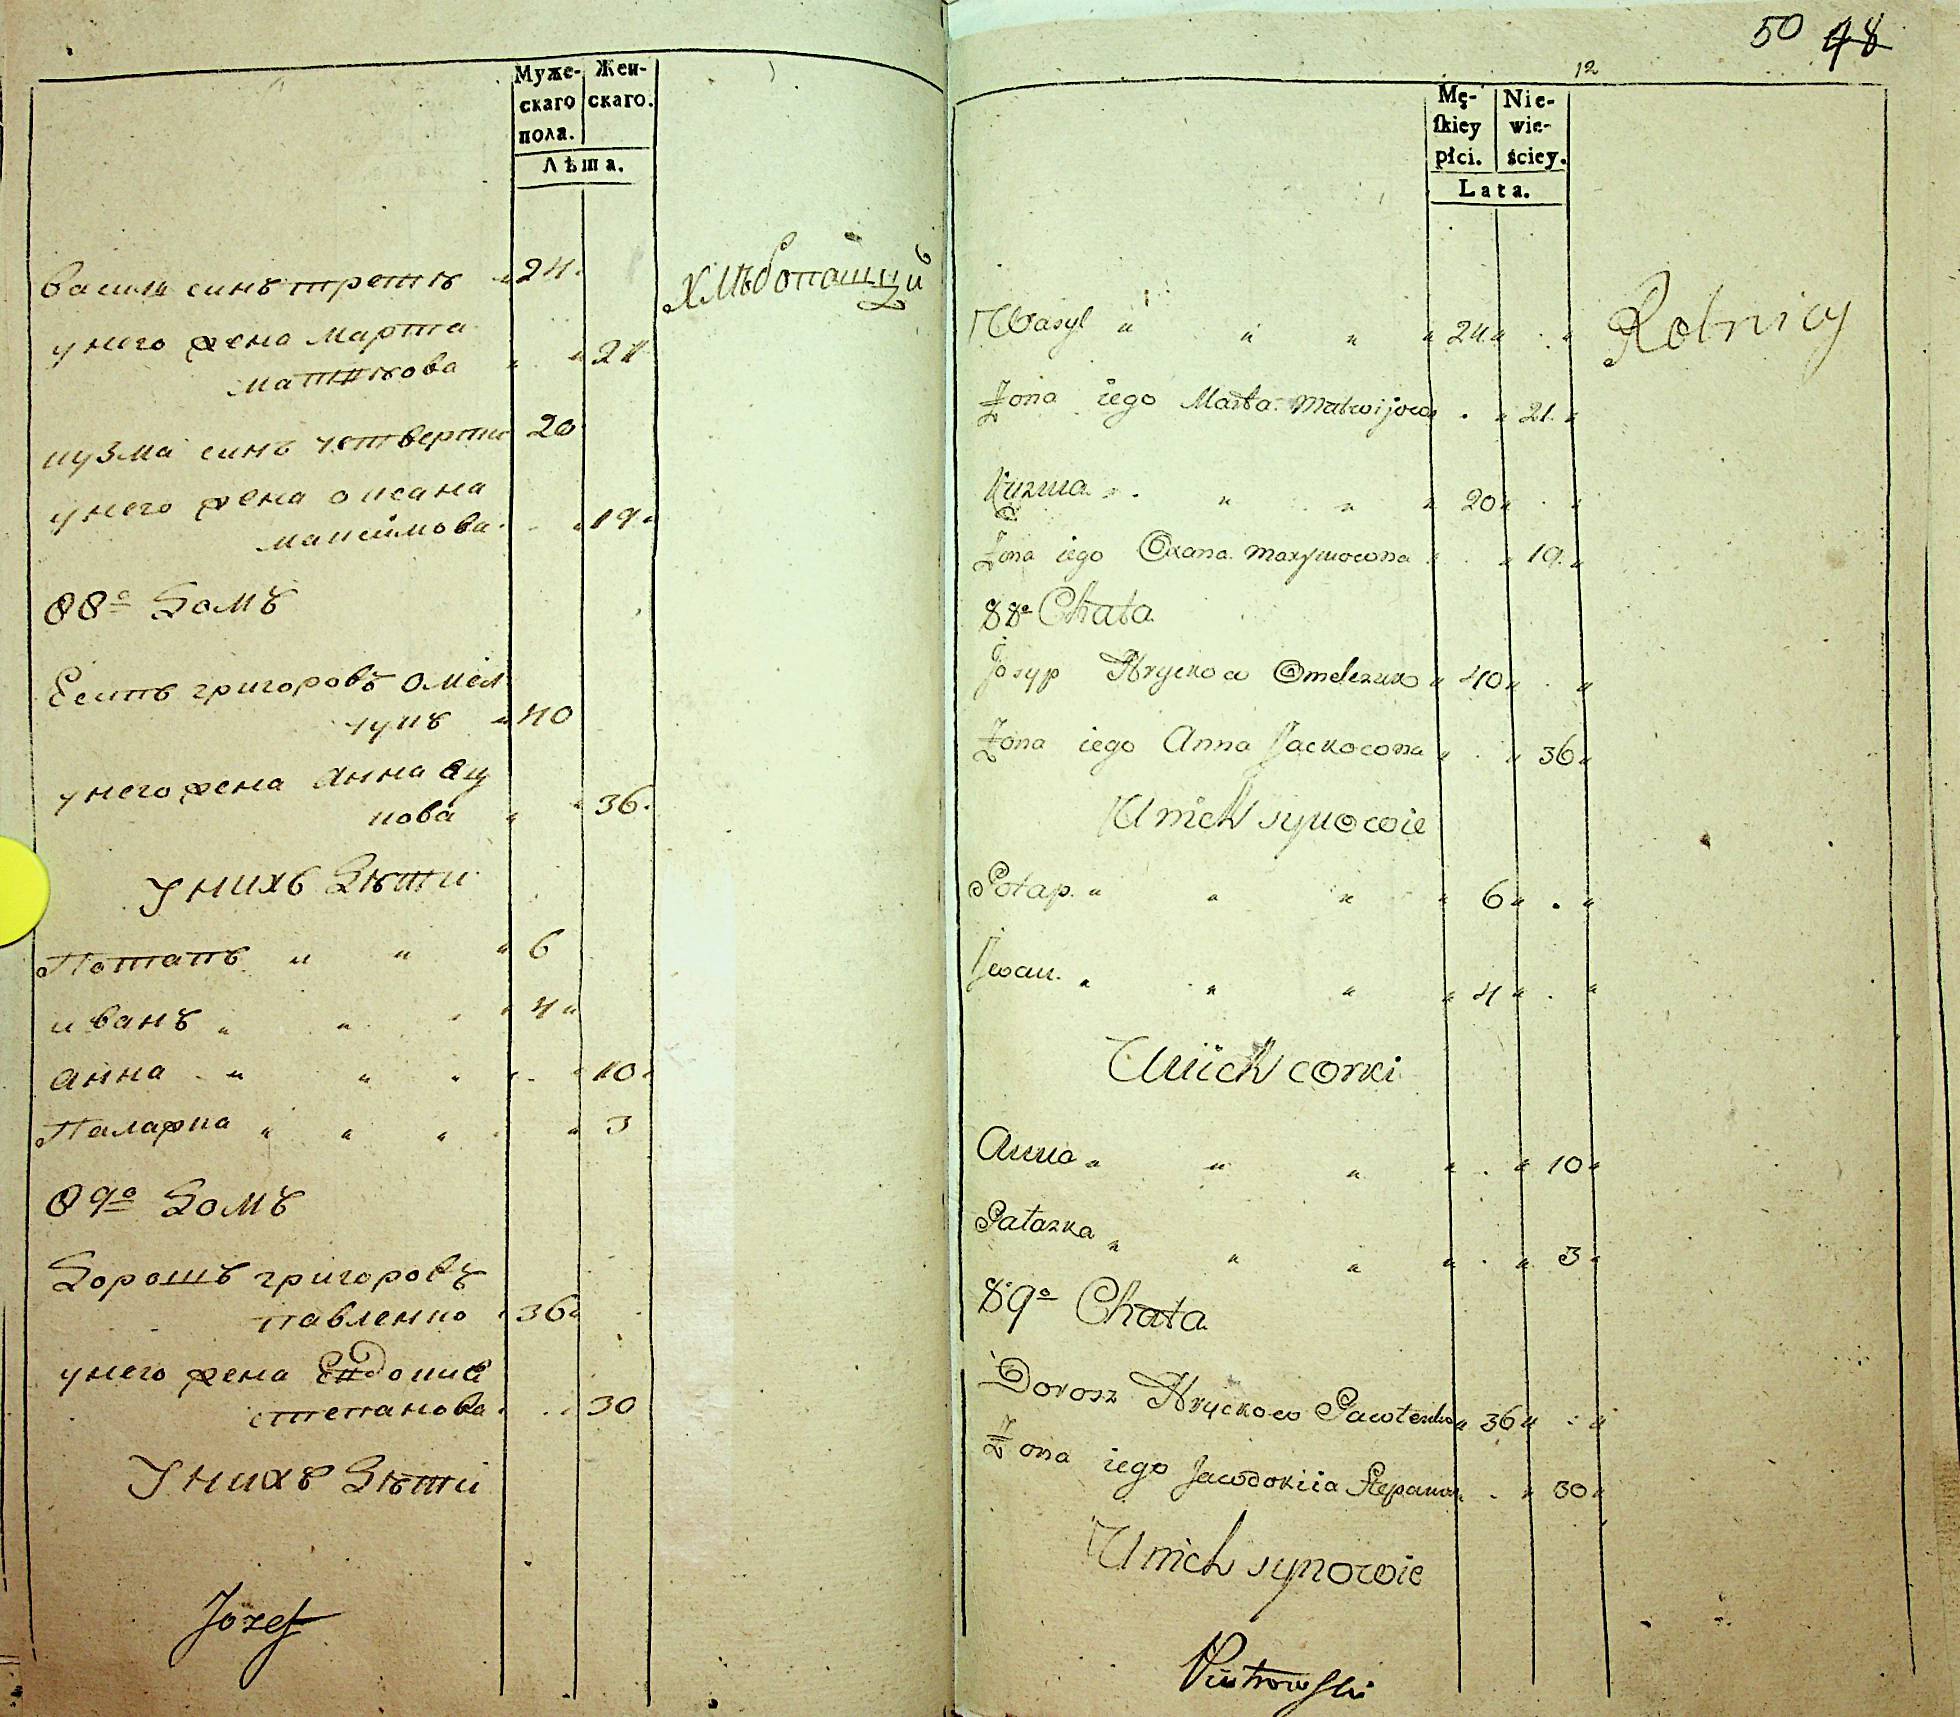 Муже-
скаго
пола.
Жен-
скаго.
Лѣта.
василь синъ третъ 24
унего жена марта
матвѣева 21
кузма синъ четверти 20
унего жена оксана
максимова 19
88º Домъ
Есипъ григоровъ омел
чукъ 40
унего жена анна яц
кова 36
Унихъ Дѣти
Потапъ 6
иванъ 4
анна 10
Палажка 3
89º Домъ
Дорошъ григоровъ
павленко 36
унего жена Евдокия
степанова 30
Унихъ Дѣти
Jozef
хлѣбопашци
50 48
12
Mę-
ſkiey
płci.
Nie-
wie-
ściey.
Lata.
Wasyl 24
Rolnicy
Żona iego Marta Matwijowa 21
Kuzma 20
Żona iego Oxana Maxymowona 19
88º Chata
Josyp Hryckow Omelczuk 40
Żona iego Anna Jackowona 36
U nich synowie
Potap 6
Jwan 4
U nich corki
Anna 10
Palazka 3
89º Chata
Dorosz Hryckow Pawlenko 36
Żona iego Jawdokiia Stepanow 30
U nich synowie
Piotrowſki